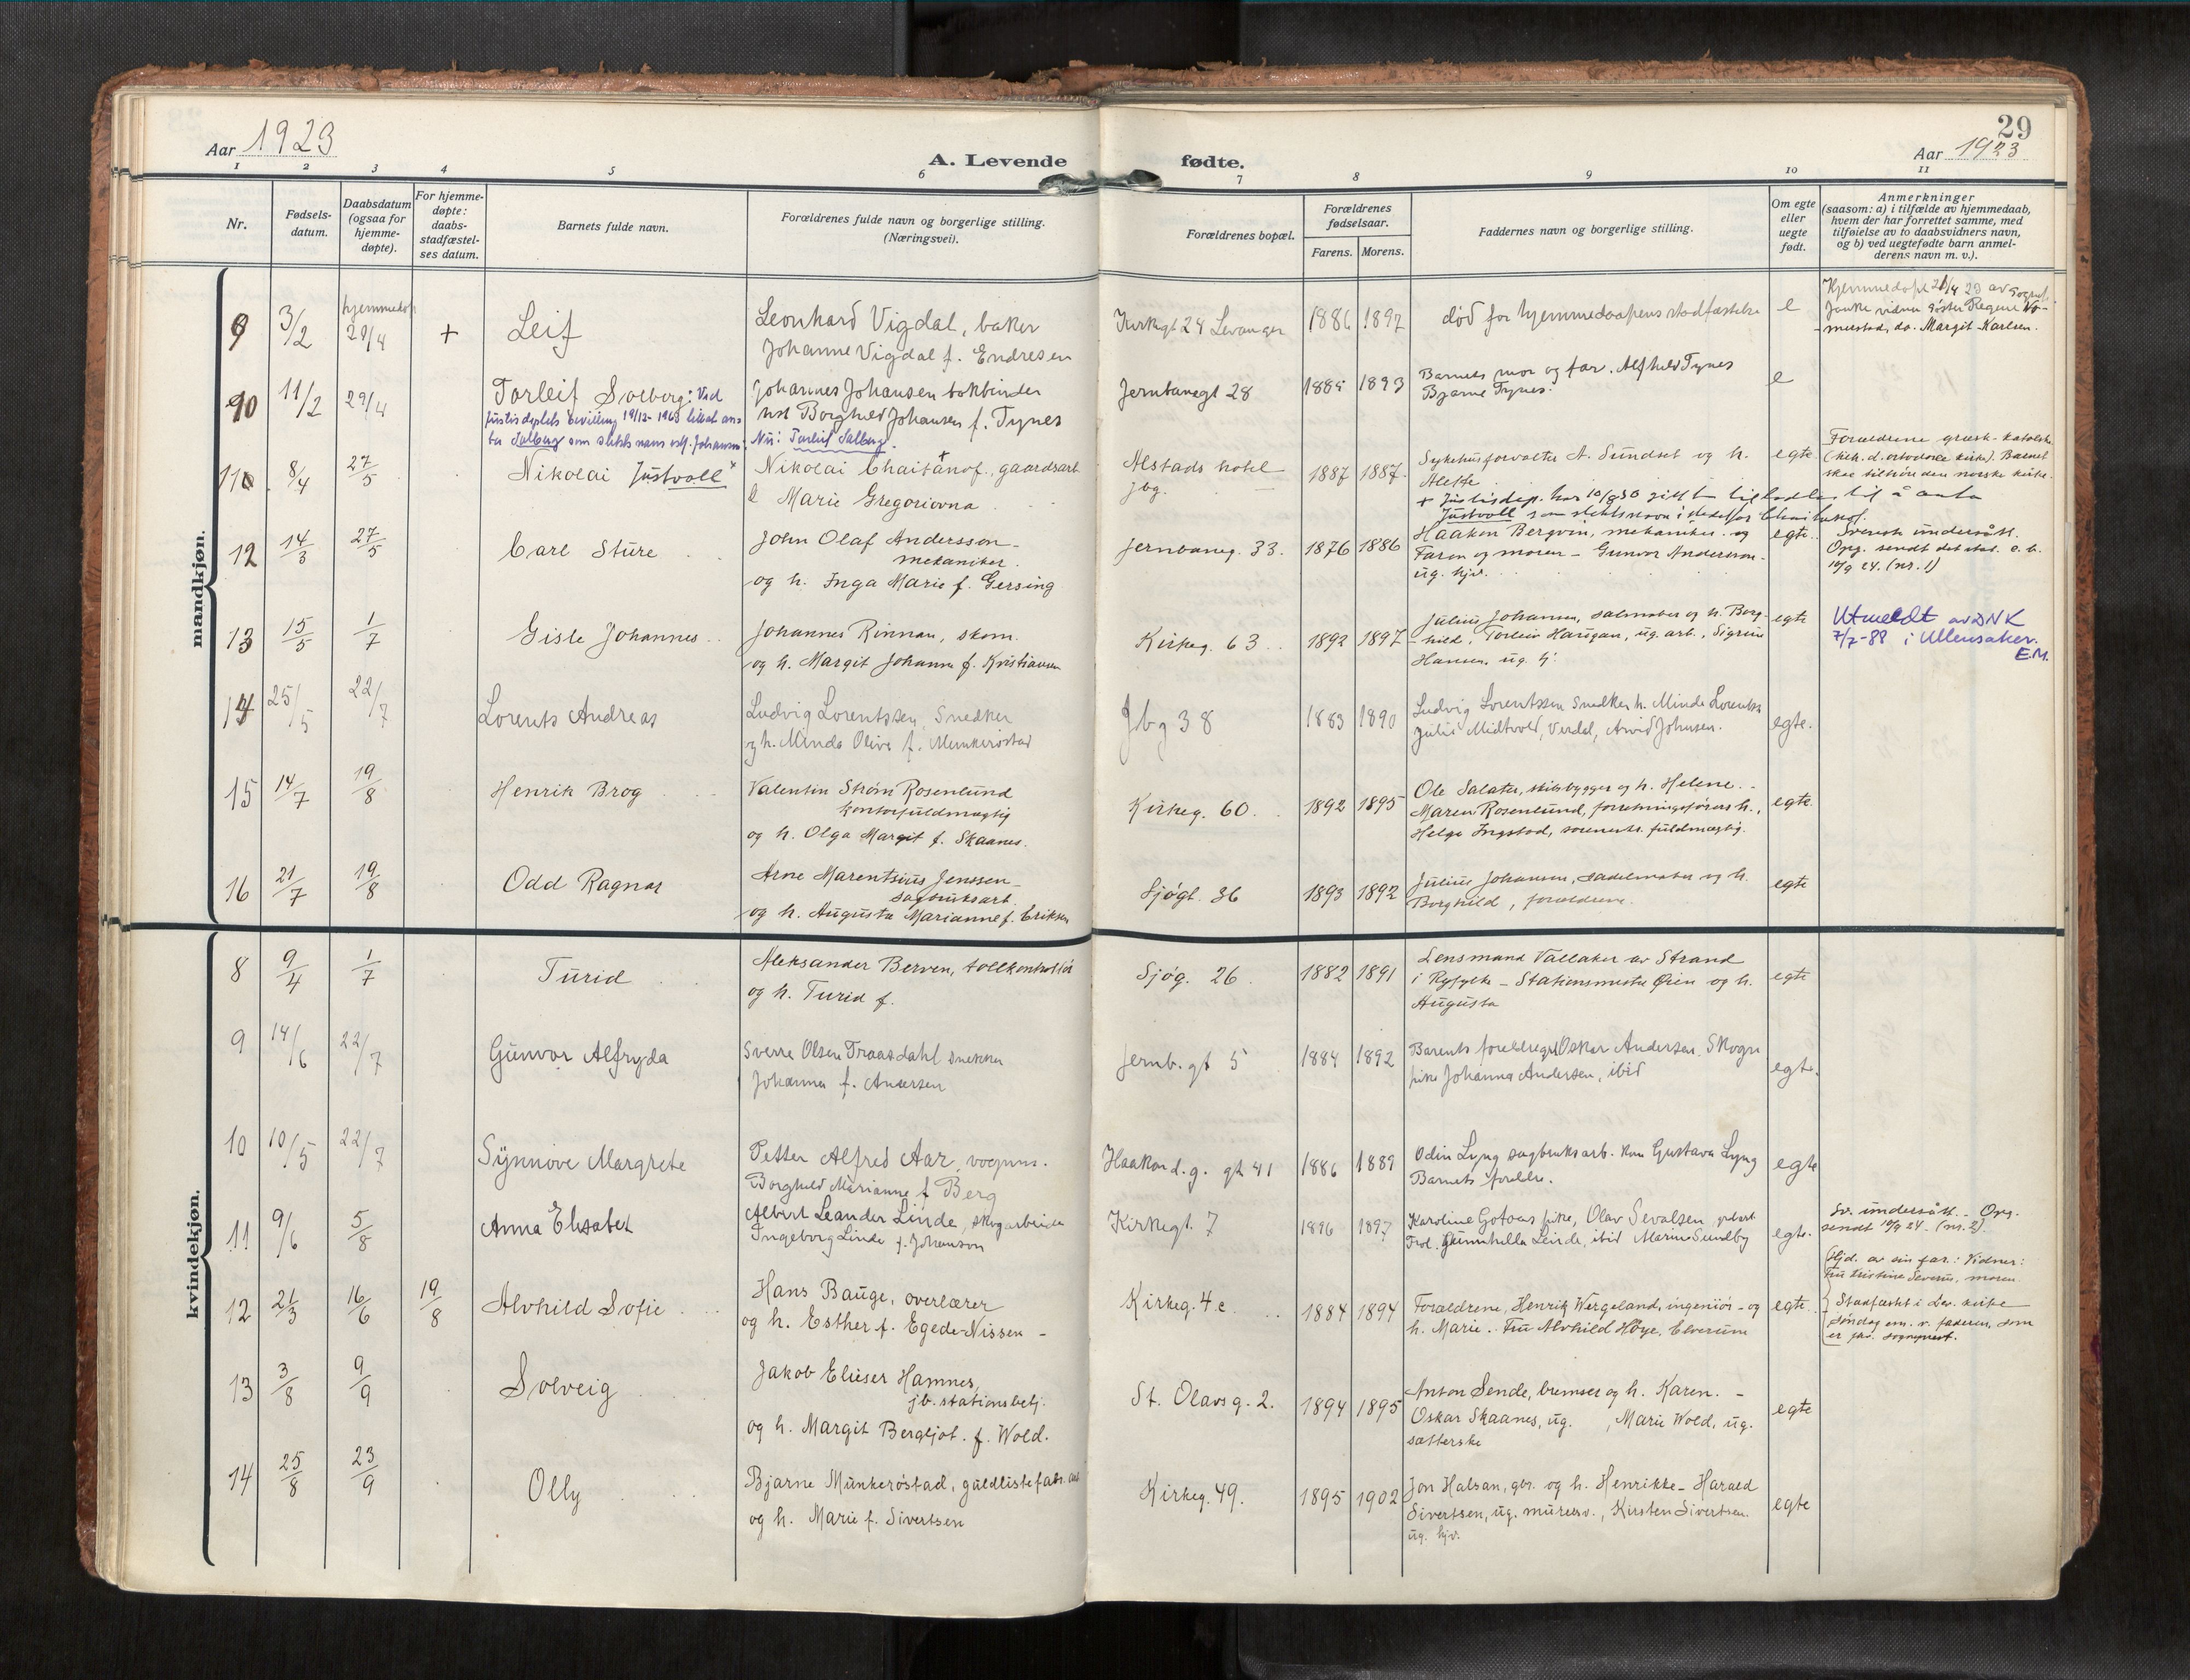 Aar 1923
A. Levende fødte.
29
Aar 1923
1 2 3 4 5 6 7 8 9 10 11
Nr.
Fødsels-
datum.
Daabsdatum
(ogsaa for
hjemme-
døpte).
For hjemme-
døpte:
daabs-
stadfæstel-
ses datum.
Barnets fulde navn.
Forældrenes fulde navn og borgerlige stilling.
(Næringsvei).
Forældrenes bopæl.
Forældrenes
fødselsaar.
Farens. Morens.
Faddernes navn og borgerlige stilling.
Om egte
eller
uegte
født.
Anmerkninger
(saasom: a) i tilfælde av hjemmedaab,
hvem der har forrettet samme, med
tilføielse av to daabsvidners navn,
og b) ved uegtefødte barn anmel-
derens navn m. v.).
mandkjøn.
9 3/2 hjemmedøp 29/4 + Leif
Leonhard Vigdal, baker
Johanne Vigdal f. Endresen
Kirkegt 24 Levanger 1886 1897
død for hjemmedaapens stadfæstelse
e
Margit Karlsen.
10 11/2 29/4 Torleif Solberg: Ved
Johannes Johansen bokbinder
Borghild Johansen f. Tynes
Nu: Torleif Salberg.
Jernbanegt 28 1893
Barnets mor og far. Alfhild Tynes
Bjarne Tynes.
e
11 8/4 27/5 Nikolai Justvoll x
Nikolai Chaitanof, gaardsarb.
Marie Gregoriovna
Alstads hotel
jbg. 1887 1887
Sykehusforvalter A. Sundset og h.
Alette
egte
Forældrene græsk-katolske
skal tilhøre den norske kirke.
+ Justisdep. har 10/9 30 gitt tilladelse til å anta
Justvoll som slektsnavn istedetfor Chaitanof.
12 14/3 27/5 Carl Sture
John Olaf Andersson
mekaniker.
og h. Inga Marie f. Gersing
Jernbaneg. 33. 1876 1886
Haakon Bergvin, mekaniker og
Faren og moren - Gunvor Andersson
ug. hjv.
egte.
Svensk undersått.
Opg. sendt det stat. c. b.
10/9 24. (nr. 1)
13 15/5 1/7 Gisle Johannes
Johannes Rinnan, skom.
og h. Margit Johanna f. Kristiansen
Kirkeg. 63 1892 1897
Julius Johansen, salmaker og h. Borg-
hild, ug. arb., Sigrun
Hansen, ug. hj.
egte
Utmeldt av DNK
7/7-88 i Ullensaker.
E.M.
14 25/5 22/7 Lorents Andreas
Ludvig Lorentssen Snedker
og h. Minda Olive f. Munkerøstad
Jbg 38 1883 1890
Ludvig Lorentssen Snedker h. Minda Lorents
Julie Midtvold, Verdal, Arvid Johnsen.
egte.
15 14/7 19/8 Henrik Brog
Valentin Strøm Rosenlund
kontorfuldmægtig
og h. Olga Margit f. Skaanes.
Kirkeg. 60. 1892 1895
Ole Salater, skibsbygger og h. Helene.
Maren Rosenlund, forretningsførers h.,
Helge Ingstad, sorenskr. fuldmægtig.
egte
16 21/7 19/8 Odd Ragnar
Arne Marentsius Jenssen
sagbruksarb.
og h. Augusta Marianne f. Eriksen
Sjøgt. 36 1893 1892
Julius Johansen, sadelmaker og h.
Borghild, forældrene.
egte
kvindekjøn.
8 9/4 1/7 Turid
Aleksander Berven, tollkontrollør
og h. Turid f.
Sjøg. 26 1882 1891
Lensmand Vallaker av Strand
i Ryfylke - Stationsmester Ørin og h.
Augusta
egte
9 14/6 22/7 Gunvor Alfryda
Sverre Olsen Traasdahl snekker
Johanna f. Andersen
Jernb. gt 5 1884 1892
Barents foreldre og Oskar Andersen, Skogn
pike Johanna Andersen, ibid
egte.
10 10/5 22/7 Synnove Margrete
Petter Alfred Aar,
Borghild Marianne f Berg
Haakon d. g. gt 41 1886 1889
Odin Lyng sagbruksarb. kone Gustava Lyng
Barnets foreldre.
egte
11 9/6 5/8 Anna Elisabet
Albert Leander Linde, skogarbeider
Ingeborg Linde f. Johanson
Kirkegt. 7 1896 1897
Karoline Gotaas pike, Olav Sevalsen
Gunnhilla Linde, ibid Marius Sundby
egte.
Sv. undersått. - Opg.
sendt 10/9 24. (nr. 2)
12 21/3 16/6 19/8 Alvhild Sofie
Hans Bauge, overlærer
og h. Esther f. Egede-Nissen -
Kirkeg. 4 c 1884 1894
Forældrene, Henrik Wergeland, ingeniør - og
h. Marie. Fru Alvhild Høye, Elverum
egte.
Hjd. av sin far: Vidner:
Fru Kristine Severus, moren
Stadfæstet i Lev. kirke
søndag em. v. faderen, som
er
13 3/8 9/9 Solveig
Jakob Elieser Hamnes,
jb. stationsbetj.
og h. Margit Bergljot. f. Wold.
St. Olavs g. 2. 1894 1895
Anton Sende, bremser og h. Karen. -
Oskar Skaanes, ug. , Marie Wold, ug.
sætterske
egte
14 25/8 23/9 Olly
Bjarne Munkerøstad, guldlistefabr. arb
og h. Marie f. Sivertsen
Kirkeg. 49. 1895 1902
Jon Halsan, gbr. og h. Henrikke - Harald
Sivertsen, ug. murersv., Kirsten Sivertsen
ug. hjv.
egte